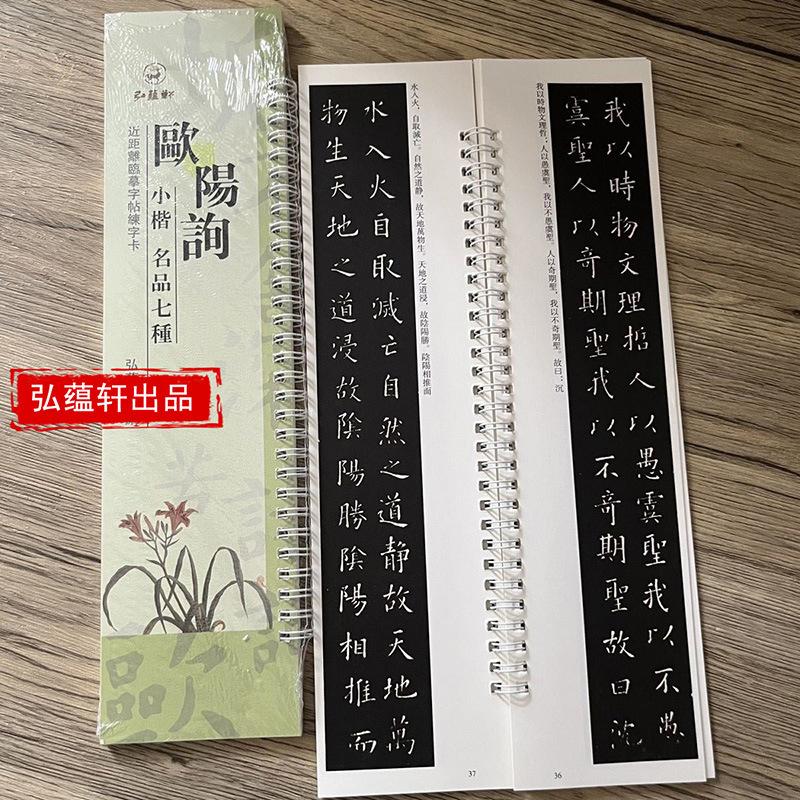 弘蘊軒
歐陽詢
小楷 名品七種
近距離臨摹字帖練字卡
弘蕴轩出品
我以時物文理哲人以愚虞聖我以不愚
虞聖人以奇期聖我以不奇期聖故曰沈
我以時物文理哲。人以愚虞聖，我以不愚虞聖。人以奇期聖，我以不奇期聖。故曰：沉
36
水入火自取滅亡自然之道静故天地萬
物生天地之道浸故陰陽勝陰陽相推而
水入火，自取滅亡。自然之道静，故天地萬物生。天地之道浸，故陰陽勝。陰陽相推而
37